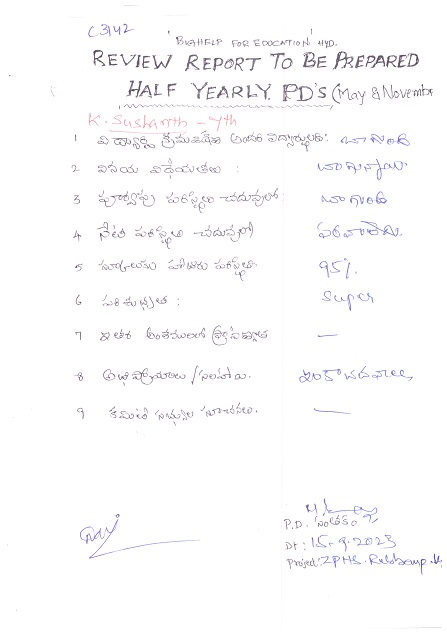 C3142
"BIGHELP FOR EDUCATION" HYD.
REVIEW REPORT TO BE PREPARED
HALF YEARLY. PD'S (May & November
K. Sushanth - 7th
1 విద్యార్థి క్రమశిక్షణ అందరి విద్యార్థులకు: బాగుంది
2 వినయ విధేయతలు : బాగున్నాయి
3 పూర్వపు పరిస్థితి చదువులో బాగుంది
4 నేటి పరిస్థితి చదువులో పరవాలేదు.
5 స్కూలుకు హాజరు పరిస్థితి 95%
6 పరిశుభ్రత : Super
7 ఇతర అంశములలో —
8 అభిప్రాయాలు / సలహాలు. ఇంకా చదవాలి
9 కమిటీ సభ్యుల సూచనలు. —
P.D. సంతకం
Dt: 15-9-2023
Project: ZPHS.